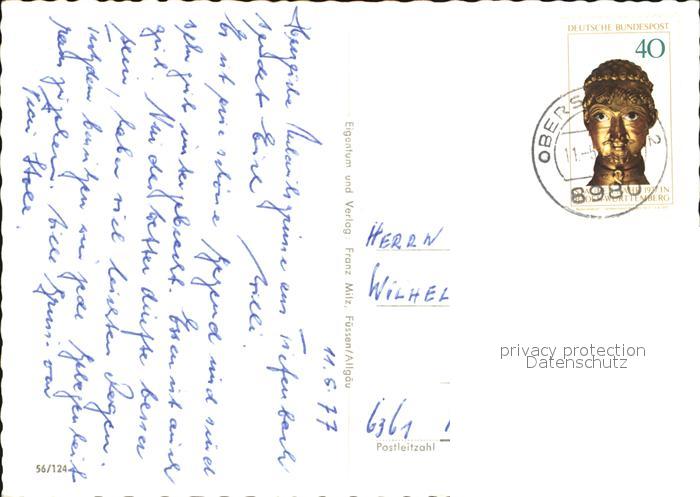 Herzliche Urlaubsgrüsse aus Tiefenbach
sendet Euch Willi.
Es ist eine schöne Gegend und sind
sehr gut untergebracht. Essen ist auch
gut. Nur das Wetter dürfte besser
sein, haben viel leichten Regen.
Trotzdem benützen wir jede Gelegenheit
raus zu gehen. Viele Grüsse von
11.6.77
Eigentum und Verlag: Franz Milz, Füssen/Allgäu
56/124
DEUTSCHE BUNDESPOST
40
OBERS
2
8980
1977 IN
WÜRTTEMBERG
HERRN
WILHEL
6361
Postleitzahl
privacy protection
Datenschutz